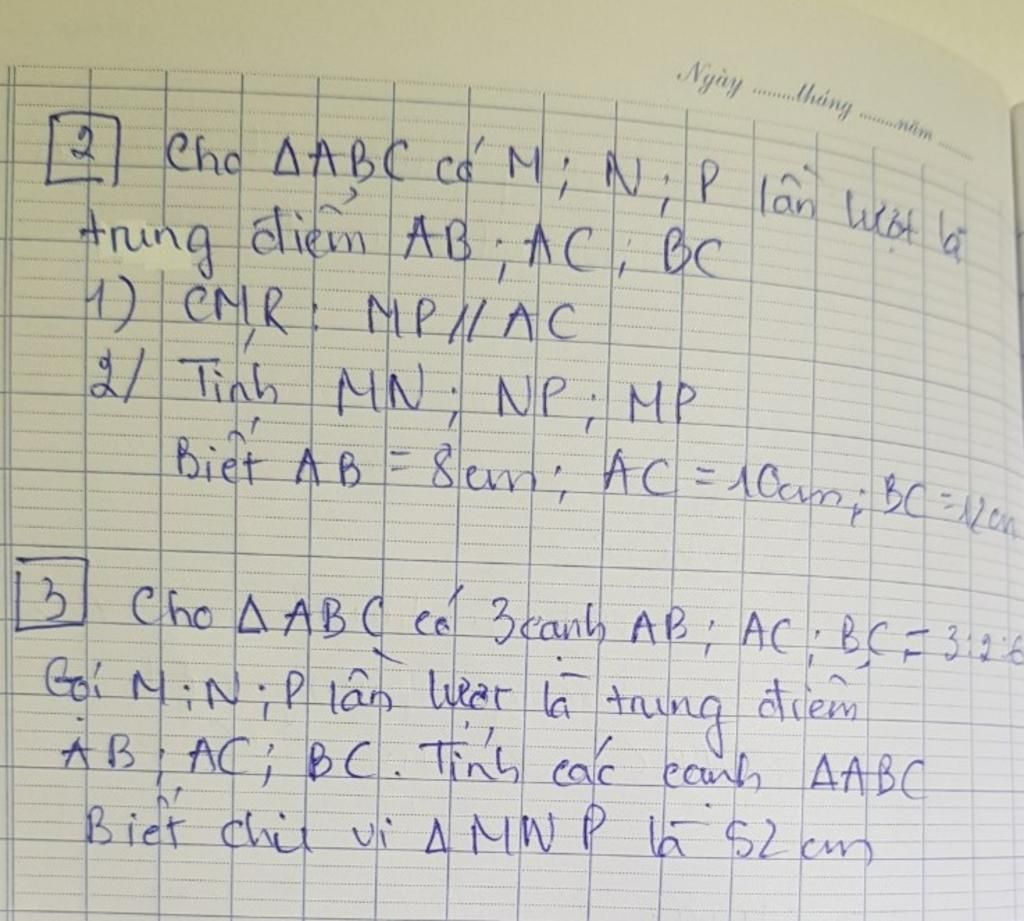 Ngày ........tháng ........năm ........
2 Cho ΔABC có M; N; P lần lượt là
trung điểm AB; AC; BC
1) CMR: MP // AC
2/ Tính MN; NP; MP
Biết AB = 8cm; AC = 10cm; BC = 12cm
3 Cho ΔABC có 3 cạnh AB; AC; BC = 3:2:6
Gọi M; N; P lần lượt là trung điểm
AB; AC; BC. Tính các cạnh ΔABC
Biết chu vi ΔMNP là 52 cm